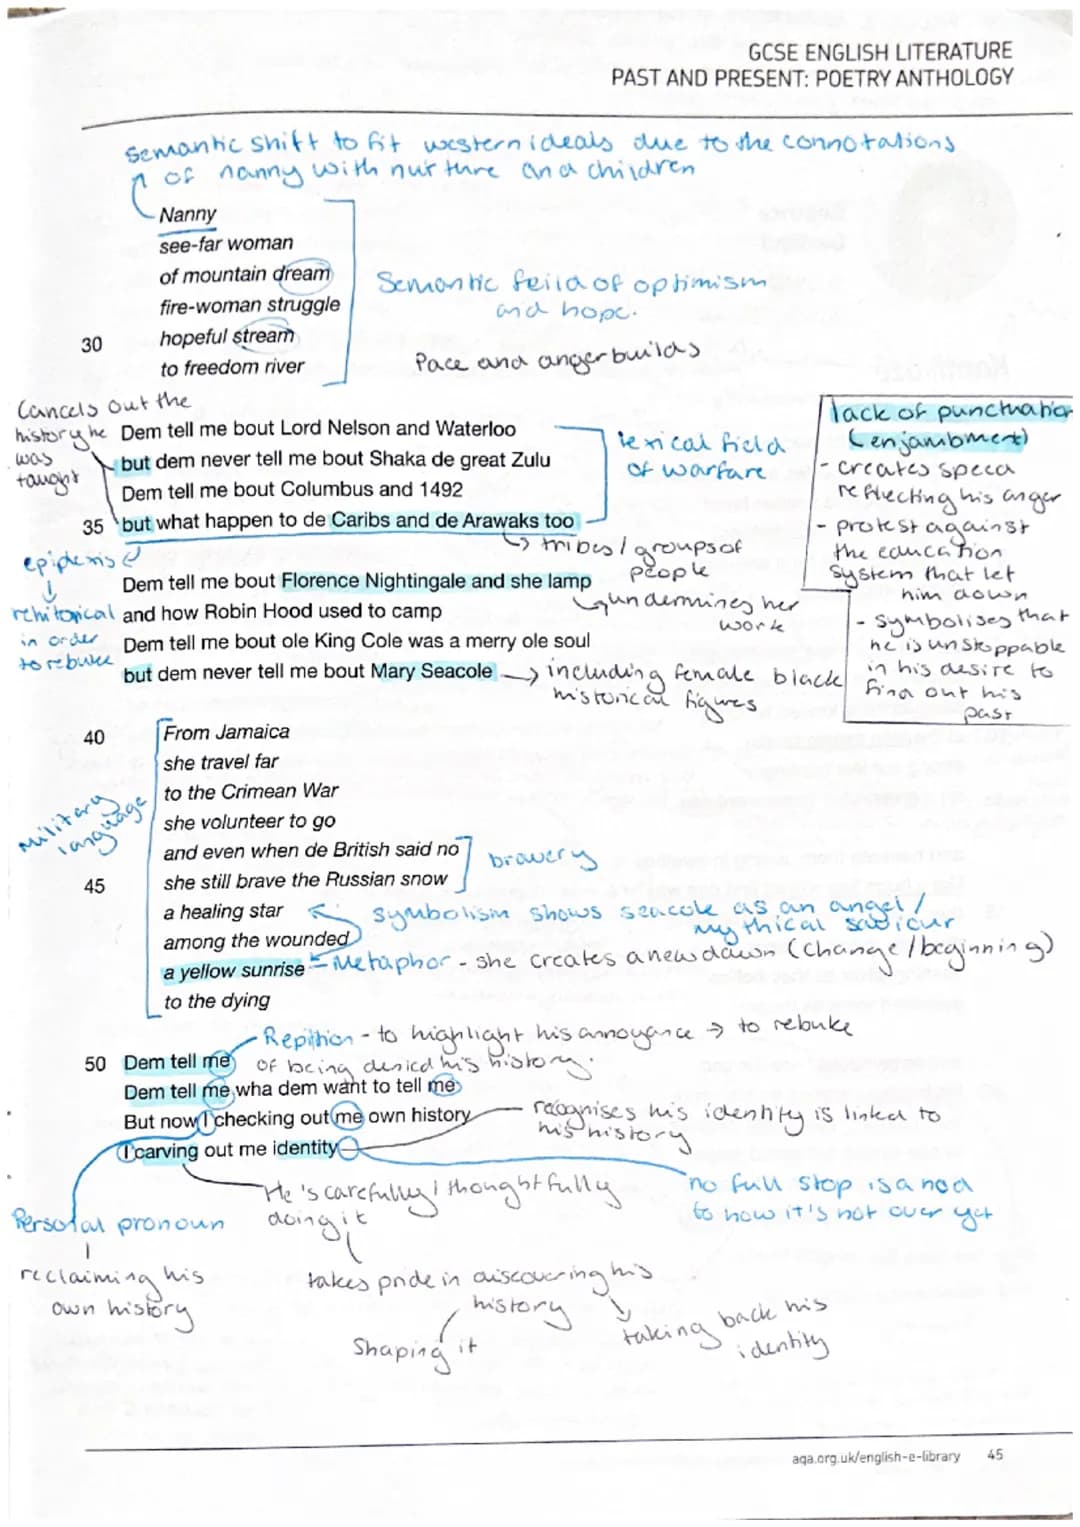 GCSE ENGLISH LITERATURE
PAST AND PRESENT: POETRY ANTHOLOGY
Semantic shift to fit western ideals due to the connotations
of nanny with nurture and children
Nanny
see-far woman
of mountain dream
fire-woman struggle
30 hopeful stream
to freedom river
Semantic feild of optimism
and hope.
Pace and anger builds
Cancels out the
history he
was
taught
Dem tell me bout Lord Nelson and Waterloo
but dem never tell me bout Shaka de great Zulu
Dem tell me bout Columbus and 1492
35 but what happen to de Caribs and de Arawaks too
lexical field
of warfare
tribes / groups of
people
epiplexis
↓
rehitorical
in order
to rebuke
Dem tell me bout Florence Nightingale and she lamp
and how Robin Hood used to camp
Dem tell me bout ole King Cole was a merry ole soul
but dem never tell me bout Mary Seacole
undermines her
work
→ including female black
historical figures
lack of punctuation
(enjambment)
- creates speed
reflecting his anger
- protest against
the education
system that let
him down
- symbolises that
he is unstoppable
in his desire to
find out his
past
military
language
40 From Jamaica
she travel far
to the Crimean War
she volunteer to go
and even when de British said no
45 she still brave the Russian snow
a healing star
among the wounded
a yellow sunrise
to the dying
bravery
symbolism shows seacole as an angel /
mythical saviour
Metaphor - she creates a new dawn (change / beginning)
Repition - to highlight his annoyance → to rebuke
of being denied his history.
50 Dem tell me
Dem tell me wha dem want to tell me
But now I checking out me own history
I carving out me identity
recognises his identity is linked to
his history
no full stop is a nod
to how it's not over yet
He's carefully / thoughtfully
doing it
Personal pronoun
reclaiming his
own history
takes pride in discovering his
history
Shaping it
taking back his
identity
aqa.org.uk/english-e-library 45